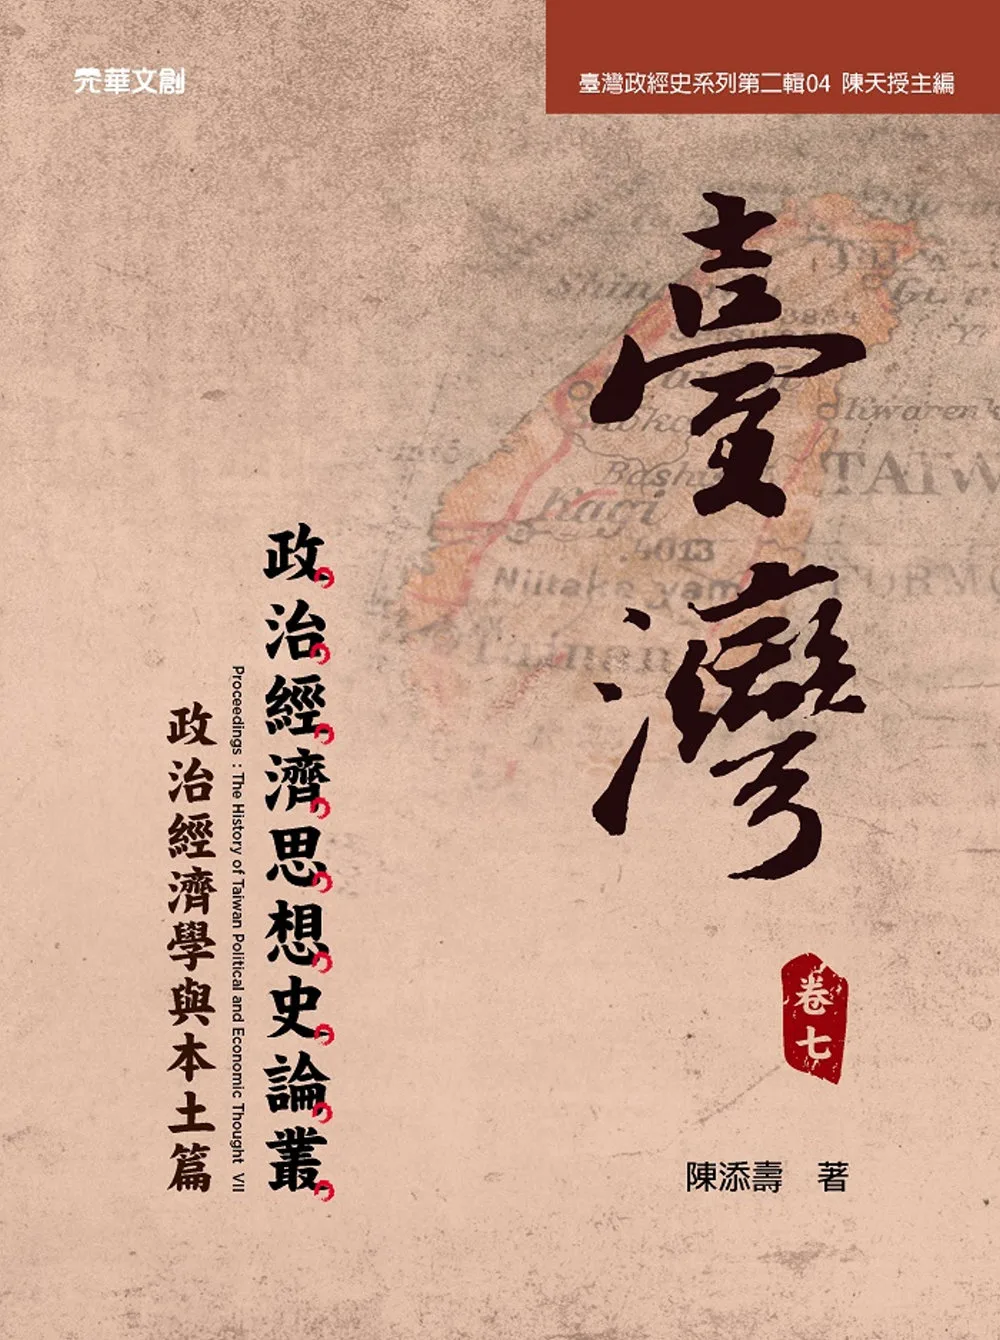 元華文創
臺灣政經史系列第二輯04 陳天授主編
臺灣
政治經濟思想史論叢
Proceedings : The History of Taiwan Political and Economic Thought VII
政治經濟學與本土篇
卷七
陳添壽 著
TAIW
Kagi
.4013
Niitaka yam